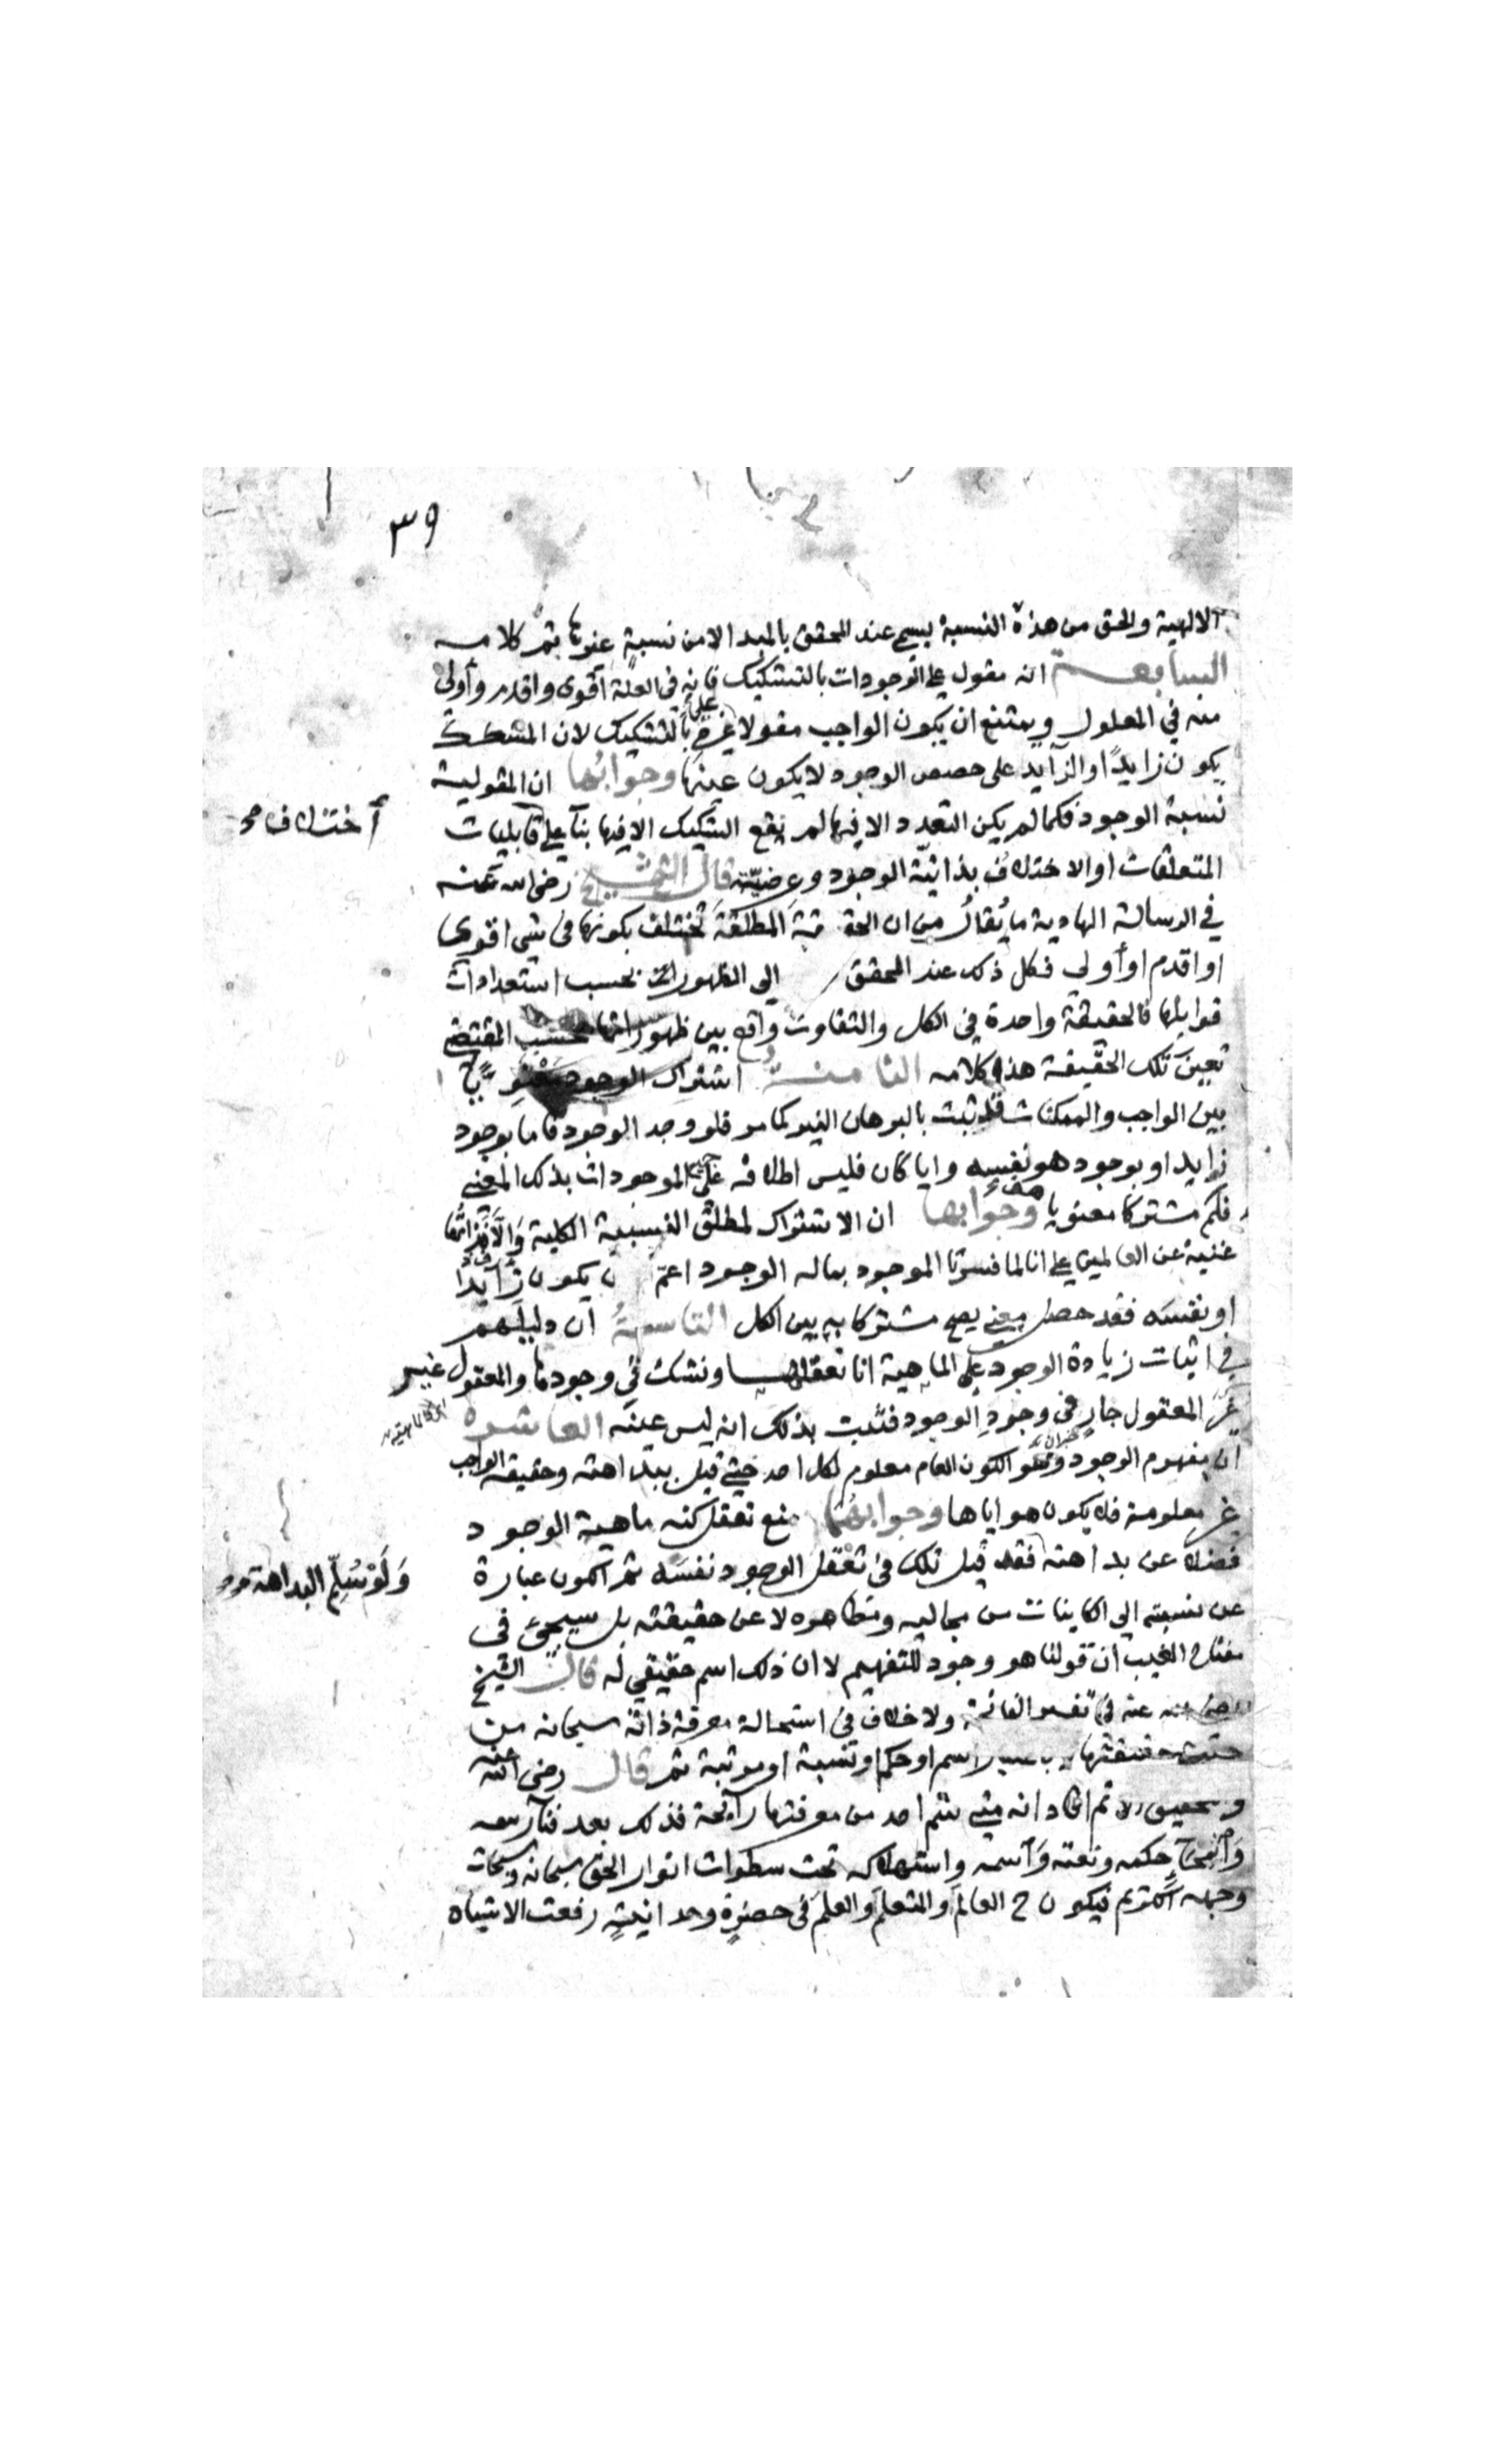 ٣٩
الالهية والحق من هذه النسبة يسمى عند المحقق بالمبدا لا من نسبة غيرها تم كلامه
السابعة انه مقول على الوجودات بالتشكيك فانه في العلة اقوى واقدم وأولى
منه في المعلول ويمتنع ان يكون الواجب مقولا على غيره بالتشكيك لان المشكك
يكون زايدًا والزايد على حصص الوجود لا يكون عينها وجوابها ان المقولية
نسبة الوجود فكما لم يكن التعدد الا فيها لم يقع التشكيك الا فيها بنآ على قابليات
اختلاف
المتعلقات او الاختلاف بذاتية الوجود وعرضيته قال الشيخ رضى الله عنه
في الرسالة الهادية ما يُقالُ من ان الحقيقة المطلقة تختلف بكونها في شى اقوى
او اقدم او أولى فكل ذلك عند المحقق الى الظهور بحسب استعدادات
قوابلها فالحقيقة واحدة في الكل والتفاوت واقع بين ظهوراتها بحسب المقتضى
تعين تلك الحقيقة هذا كلامه الثامنة اشتراك الوجود
بين الواجب والممكنات قد ثبت بالبرهان النير كما مر فلو وجد الوجود فاما بوجود
زايد او بوجود هو نفسه وايا كان فليس اطلاقه على الموجودات بذلك المعنى
فلم مشتركا معنويا وجوابها ان الاشتراك لمطلق النسبة الكلية
غنية عن العالمين على انا لما فسرنا الموجود بما له الوجود اعم ن يكون زايدا
او نفسه فقد حصل معنى يصح مشتركا به بين الكل التاسعة ان دليلهم
في اثبات زيادة الوجود على الماهية انا نعقلها ونشك في وجودها والمعقول غير
غير المعقول جارٍ في وجودِ الوجود فثبت بذلك انه ليس عينه العاشرة
ان مفهوم الوجود وهو الكون العام معلوم لكل احد حتى قيل ببداهته وحقيقة الواجب
غير معلومة فلا يكون هو اياها وجوابهما منع تعقل كنه ماهية الوجود
فضلا عن بداهته فقد قيل تلك في تعقل الوجود نفسَه ثم الكون عبارة
وَلَوْ سُلِّم البداهة
عن نسبته الى الكاينات من مجاليه ومظاهره لا عن حقيقته بل سيجئ في
مفتاح الغيب ان قولنا هو وجود للتفهيم لا ان ذلك اسم حقيقي له قال الشيخ
رضى الله عنه في تفسير الفاتحة ولا خلاف في استحالة معرفة ذاته سبحانه من
حيث حقيقتها لا باعتبار اسم او حكم او نسبة او مرتبة ثم قال رضى الله عنه
وتحقيق انه متى شم احد من معرفتها رآيحة فذلك بعد فنآ رسمه
وانمحآ حكمه ونعته وَاسمه واستهلاكه تحت سطوات انوار الحق سبحانه وسبحات
وجهه الكريم فيكون ح العالم والمتعلم والعلم في حضرة وحدانيته رفعت الاشتباه